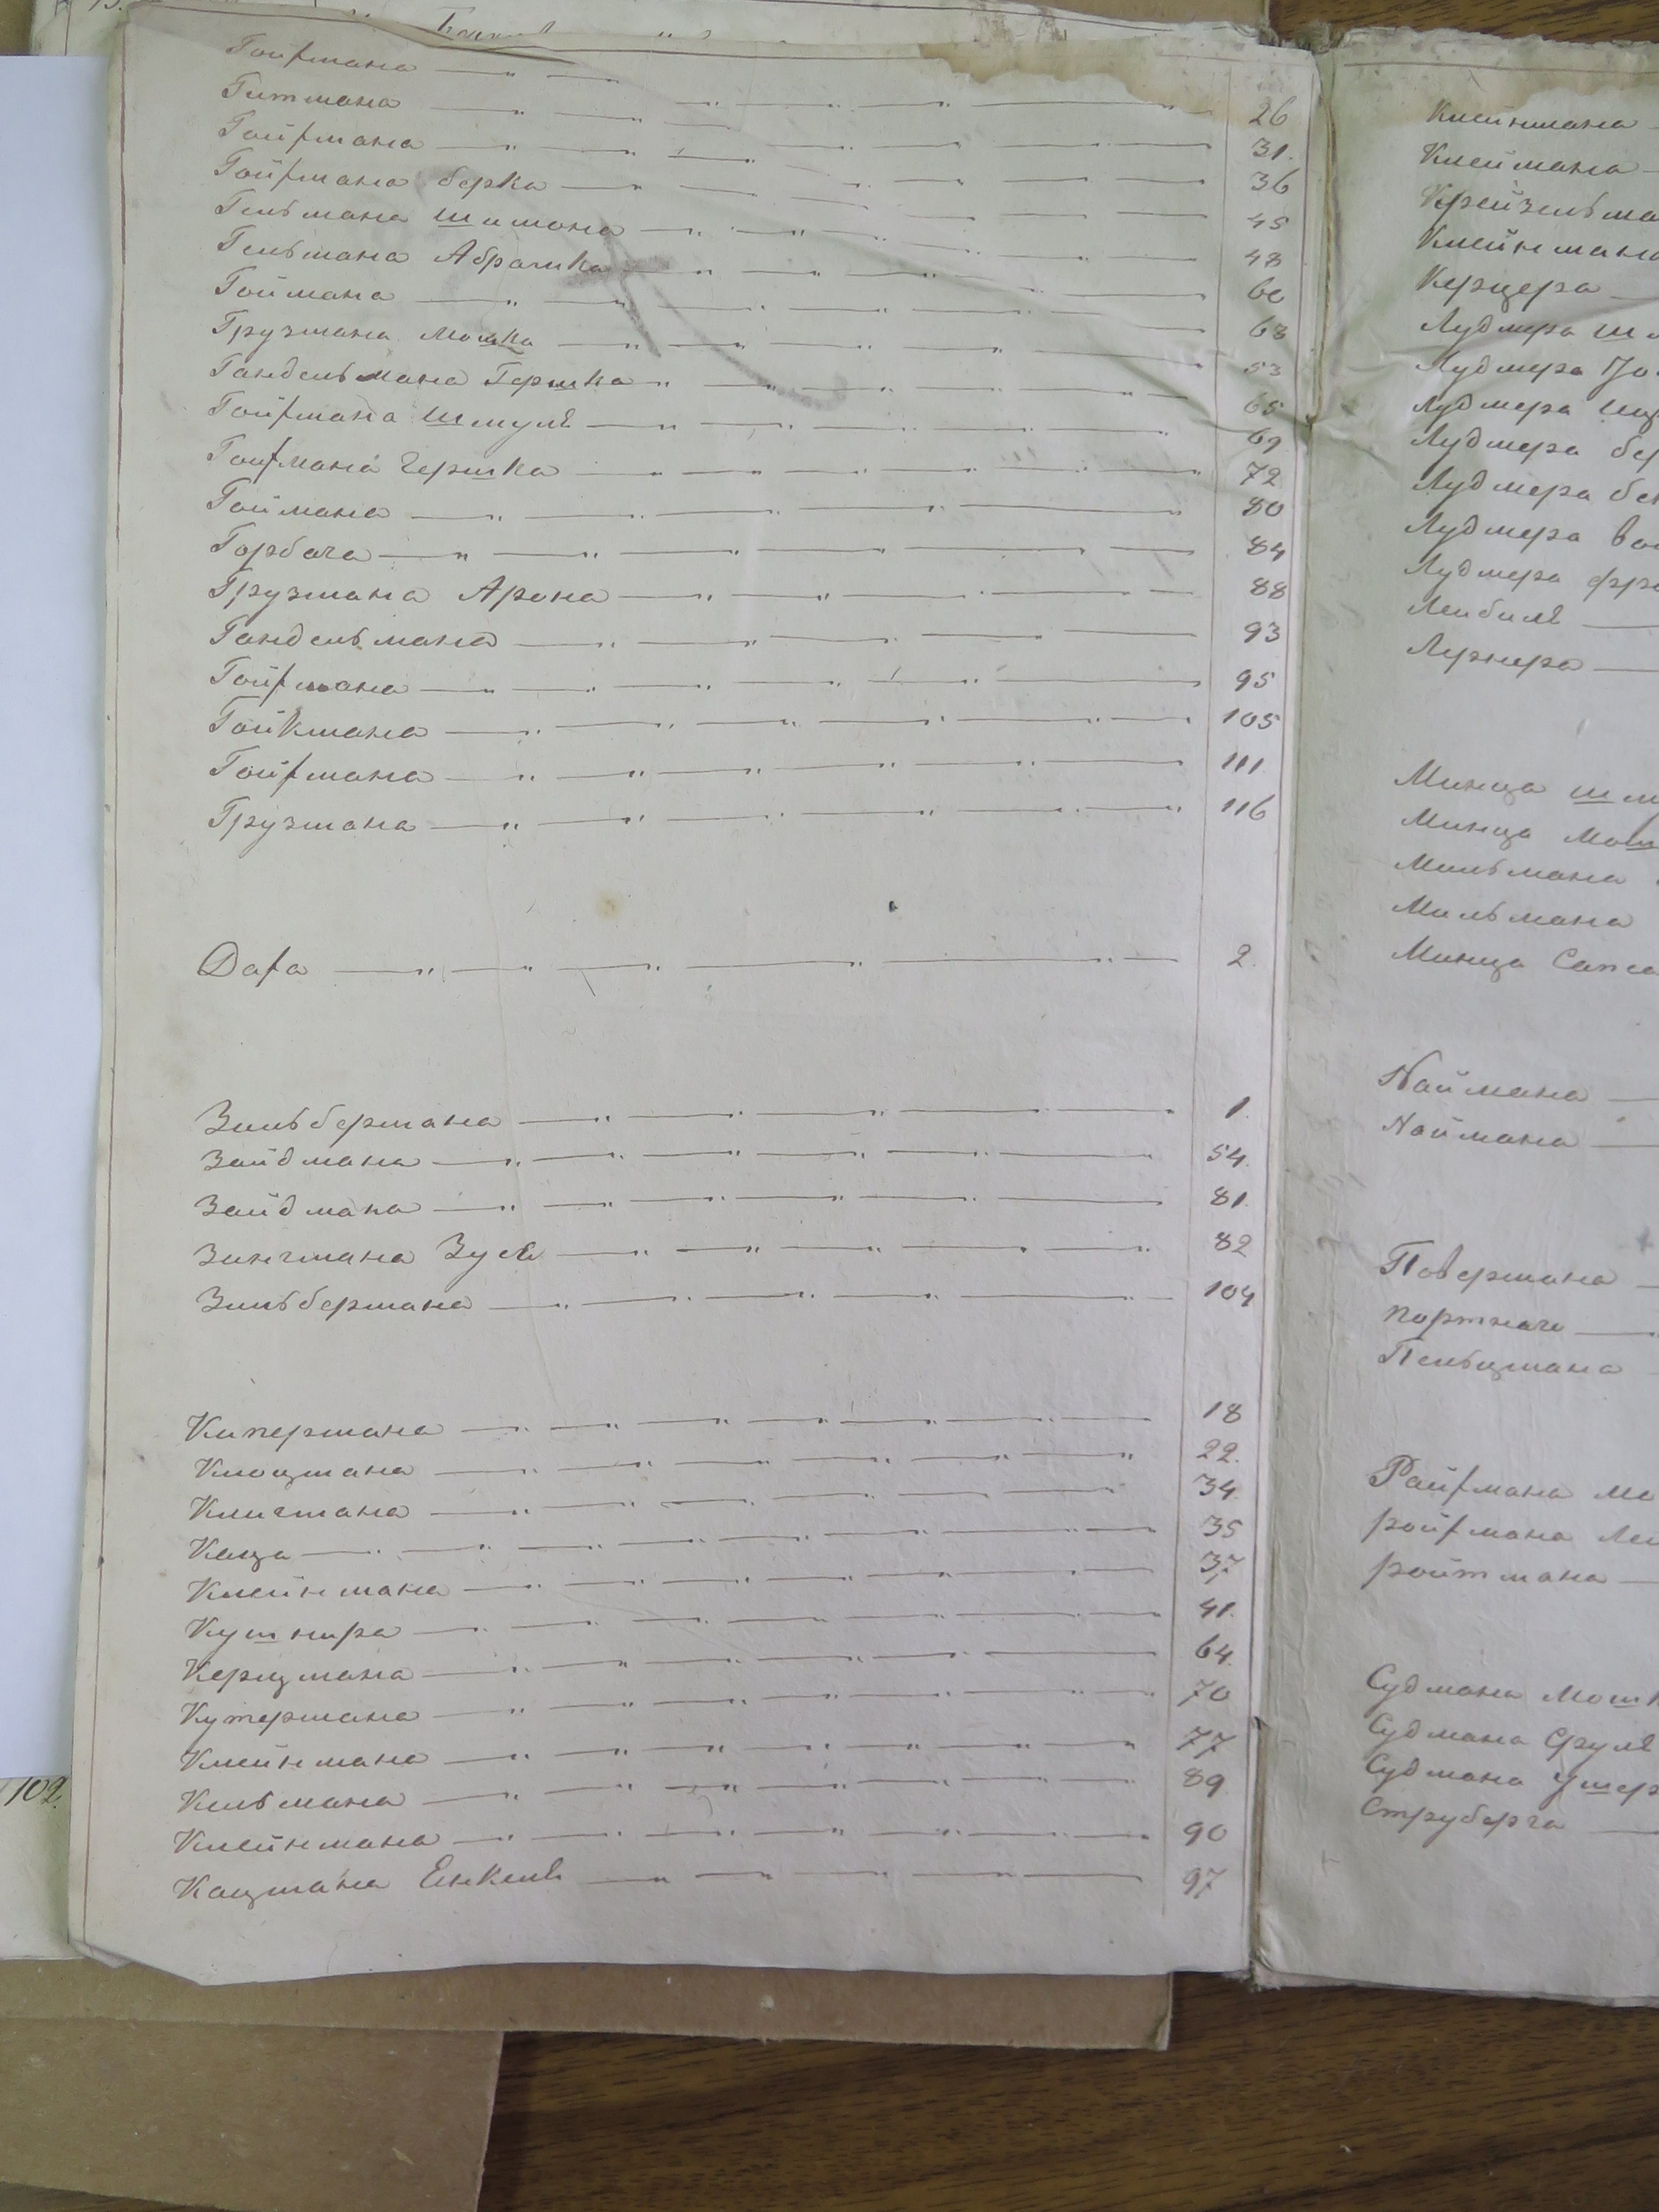 Гойфмана 26
Гитмана 31.
Гойфмана 36
Гойфмана берка 45
Гельмана Шимона 48
Гельмана Абрамка 60
Гоймана 63
Грузмана Мошка 53
Гандельмана Гершка 65
Гойфмана Шмуля 69
Гойфмана Гершка 72
Гоймана 80
Горбача 84
Грузмана Арона 88
Гандельмана 93
Гойфмана 95
Гойкмана 105
Гойфмана 111.
Грузмана 116
Dafa 2.
Зильбермана 1.
Зайдмана 54.
Зайдмана 81.
Зингмана Зуся 82
Зильбермана 104
Кипермана 18
Клоцмана 22.
Клигмана 34
Каца 35
Клейнмана 37
Кушнира 41.
Керцмана 64.
Кутермана 70
Клейнмана 77
Кельмана 89
Клейнмана 90
Кацмана Енкеля 97
102.
Клейнмана
Клеймана
Крейзельма
Клейнмана
Керцера
Лудмера
Лудмера
Лудмера
Лудмера бе
Лудмера бе
Лудмера
Лудмера
Лейбиля
Лернера
Минца шм
Минца Мош
Мильмана
Мильмана
Минца
Наймана
Наймана
Повермана
портного
Пельцмана
Райфмана
ройфмана Лей
ройтмана
Судмана Мошк
Судмана Сруля
Судмана Ушер
Струберга